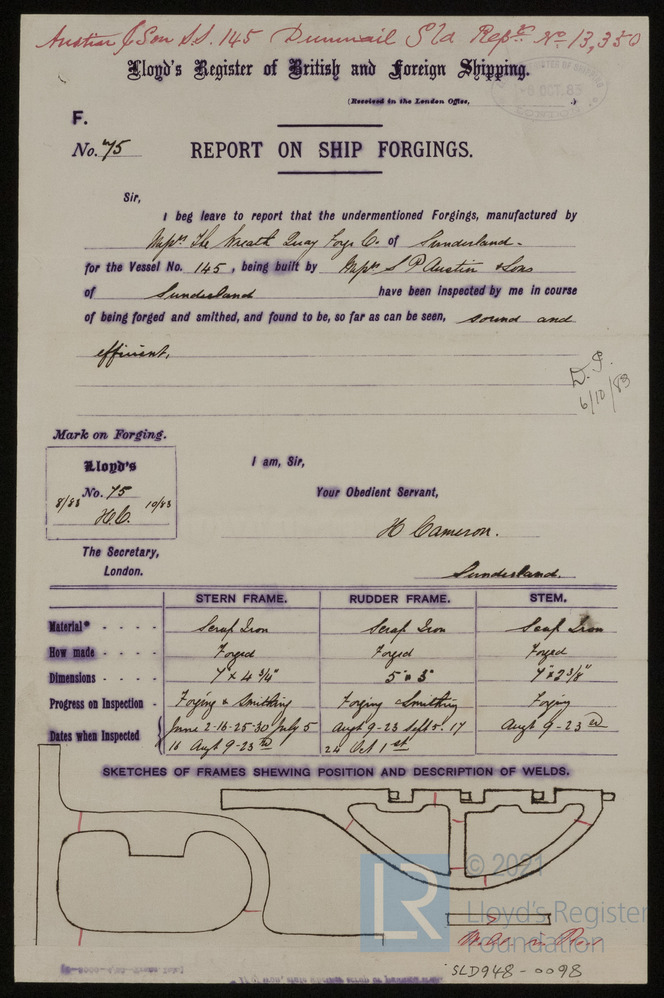 Austin & Son S.S. 145 Dunmail Sld Rept No 13,350
Lloyd's Register of British and Foreign Shipping.
(Received in the London Office,
8 OCT. 83
F.
No. 75
REPORT ON SHIP FORGINGS.
Sir,
I beg leave to report that the undermentioned Forgings, manufactured by
Messrs The Wreath Quay Forge Co. of Sunderland.
for the Vessel No. 145, being built by Messrs S P Austin & Sons
of Sunderland have been inspected by me in course
of being forged and smithed, and found to be, so far as can be seen, sound and
efficient.
6/10/83
Mark on Forging.
Lloyd's
No. 75
8/83 10/83
H.C.
I am, Sir,
Your Obedient Servant,
H Cameron.
The Secretary,
London.
Sunderland.
STERN FRAME. RUDDER FRAME. STEM.
Material* - - - - Scrap Iron Scrap Iron Scrap Iron
How made - - - - Forged Forged Forged
Dimensions - - - - 7" x 4 3/4" 5" x 3" 7" x 2 3/8"
Progress on Inspection - Forging & Smithing Forging & Smithing Forging
Dates when Inspected June 2-16-25-30 July 5 Augt 9-23 Sept 5. 17 Augt 9-23rd
16 Augt 9-23rd 24 Oct 1st
SKETCHES OF FRAMES SHEWING POSITION AND DESCRIPTION OF WELDS.
LR
© 2021
Lloyd's Register
Foundation
Welds in Red
SLD948-0098